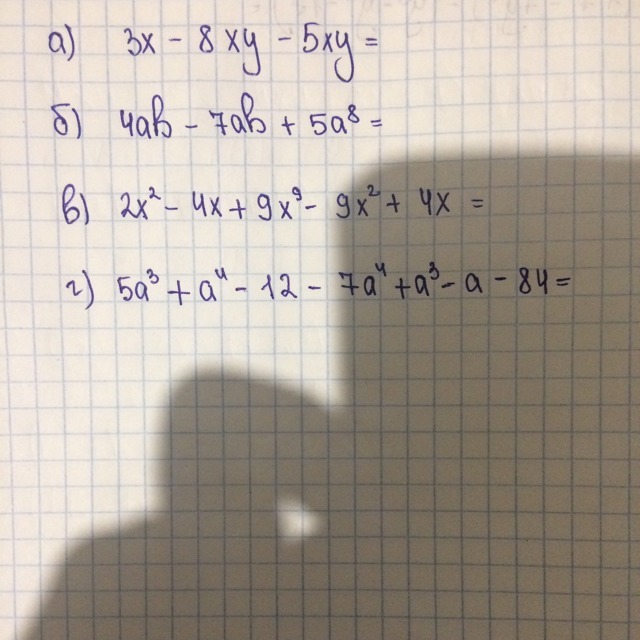 а) 3x - 8xy - 5xy =
б) 4ab - 7ab + 5a⁸ =
в) 2x² - 4x + 9x⁹ - 9x² + 4x =
г) 5a³ + a⁴ - 12 - 7a⁴ + a³ - a - 84 =